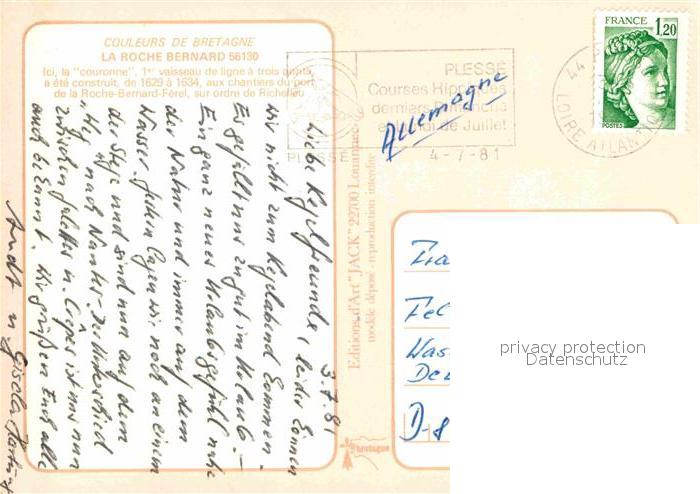 COULEURS DE BRETAGNE
LA ROCHE BERNARD 56130
Ici, la "couronne", 1er vaisseau de ligne à trois ponts,
a été construit, de 1629 à 1534, aux chantiers du port
de la Roche-Bernard-Férel, sur ordre de Richelieu
3.7.81
Liebe Kegelfreunde, leider können
wir nicht zum Kegelabend kommen.
Es gefällt uns zu gut im Urlaub. –
Ein ganz neues Urlaubsgefühl nahe
der Natur und immer auf dem
Wasser. Gestern lagen wir noch an einem
der Stege und sind nun auf dem
Weg nach Nantes. Der Unterschied
zwischen Galettes u. Crêpes ist uns nun
auch bekannt. Wir grüßen Euch alle
u Gisela
Editions d'Art "JACK" 22700 Louannec
modèle déposé - reproduction interdite
bretagne
PLESSE
Courses Hippiques
derniers Dimanche
et Lundi de Juillet
PLESSE
4-7-81
Allemagne
44
LOIRE ATLANTIQUE
FRANCE
1,20
POSTES
Fel
Was
D-8
privacy protection
Datenschutz